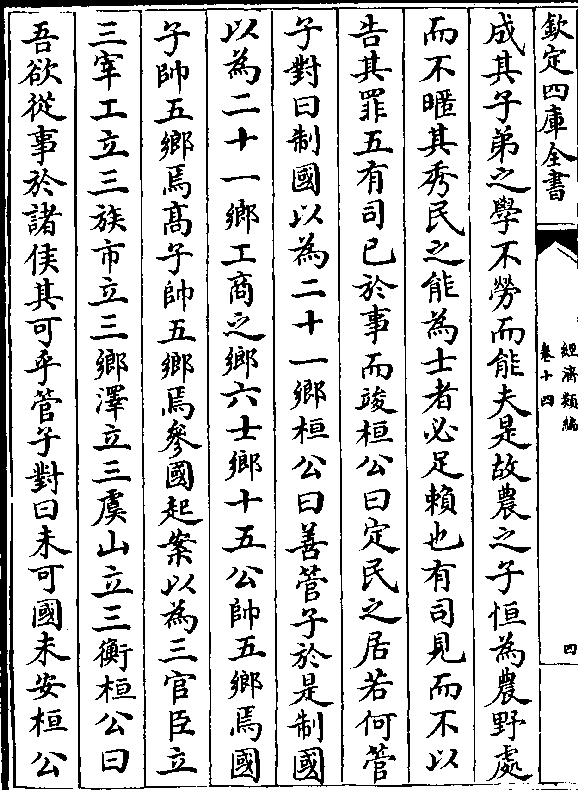 欽定四庫全書
經濟類編
卷十四
四
成其子弟之學不勞而能夫是故農之子恒為農野處
而不暱其秀民之能為士者必足賴也有司見而不以
告其罪五有司已於事而竣桓公曰定民之居若何管
子對曰制國以為二十一鄉桓公曰善管子於是制國
以為二十一鄉工商之鄉六士鄉十五公帥五鄉焉國
子帥五鄉焉髙子帥五鄉焉參國起案以為三官臣立
三宰工立三族市立三鄉澤立三虞山立三衡桓公曰
吾欲從事於諸侯其可乎管子對曰未可國未安桓公